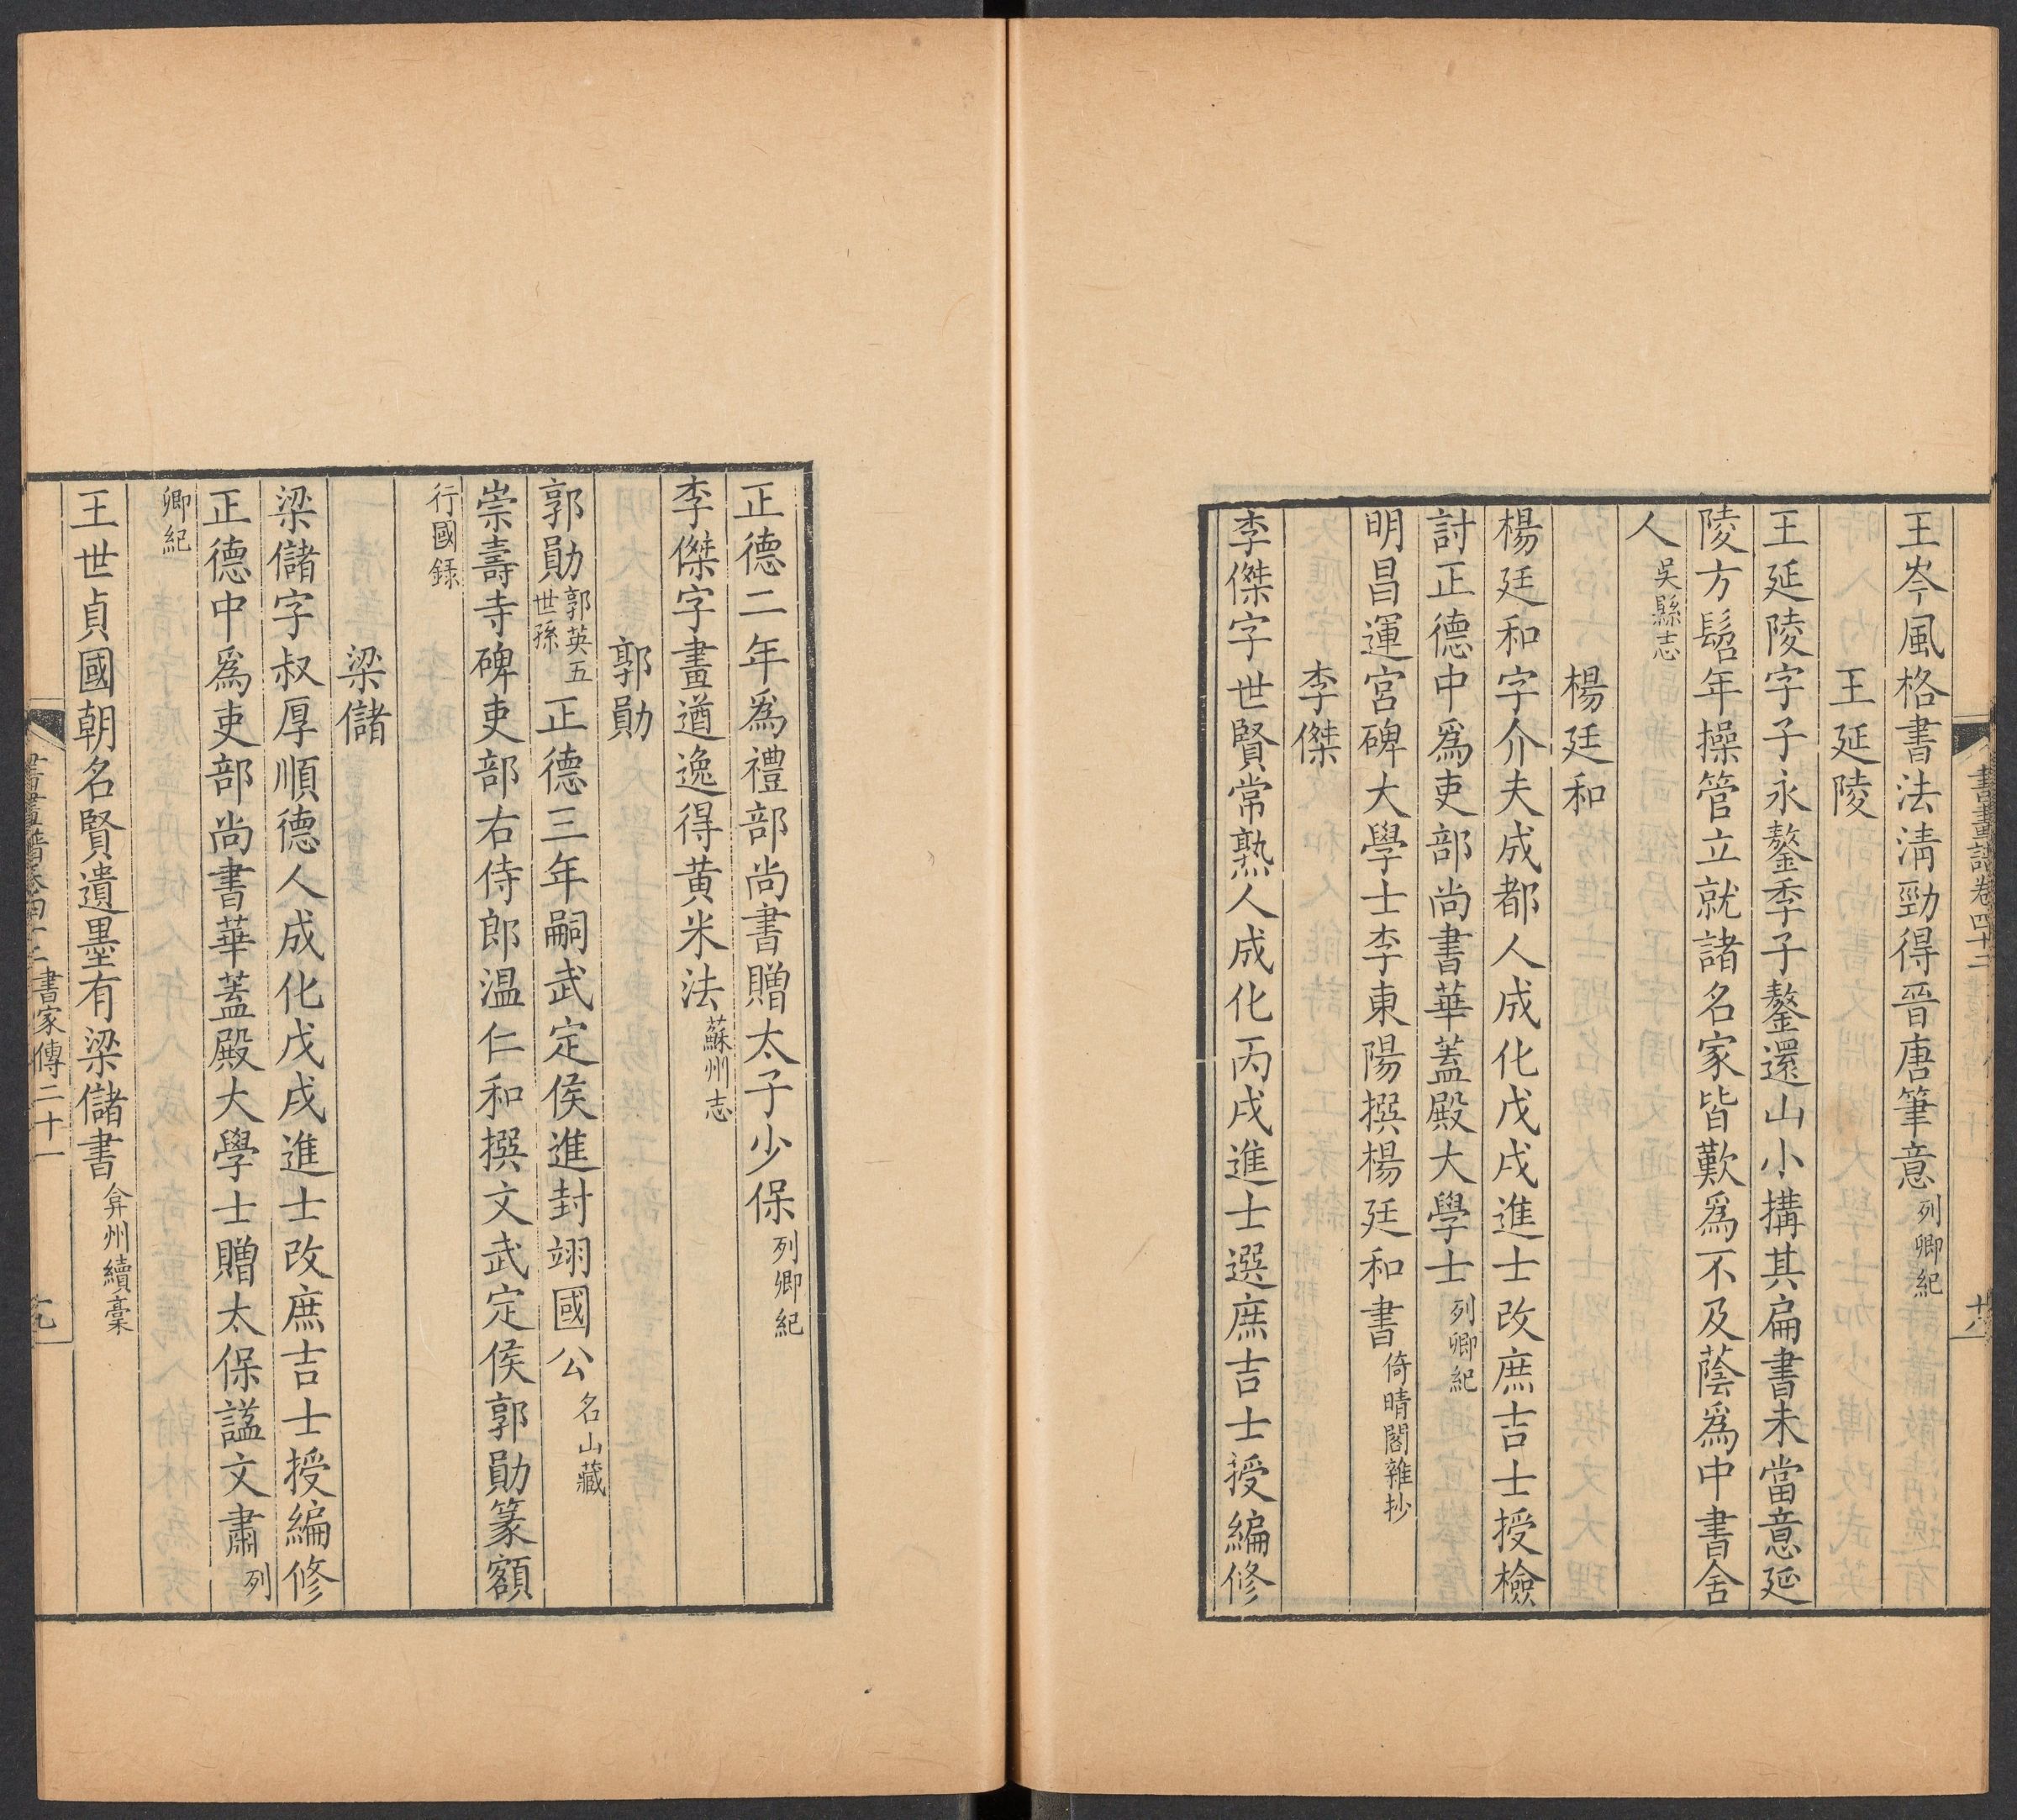 書畫譜卷四十二
王岑風格書法清勁得晉唐筆意列卿紀
王延陵
王延陵字子永鏊季子鏊還山小搆其扁書未當意延
陵方髫年操管立就諸名家皆歎爲不及蔭爲中書舍
人吳縣志
楊廷和
楊廷和字介夫成都人成化戊戌進士改庶吉士授檢
討正德中爲吏部尚書華蓋殿大學士列卿紀
明昌運宮碑大學士李東陽撰楊廷和書倚晴閣雜抄
李傑
李傑字世賢常熟人成化丙戌進士選庶吉士授編修
正德二年爲禮部尚書贈太子少保列卿紀
李傑字畫遒逸得黄米法蘇州志
郭勛
郭勛郭英五世孫正德三年嗣武定侯進封翊國公名山藏
崇壽寺碑吏部右侍郎温仁和撰文武定侯郭勛篆額
行國録
梁儲
梁儲字叔厚順德人成化戊戌進士改庶吉士授編修
正德中爲吏部尚書華蓋殿大學士贈太保諡文肅列
卿紀
王世貞國朝名賢遺墨有梁儲書弇州續稾
書畫譜卷四十二 書家傳二十一